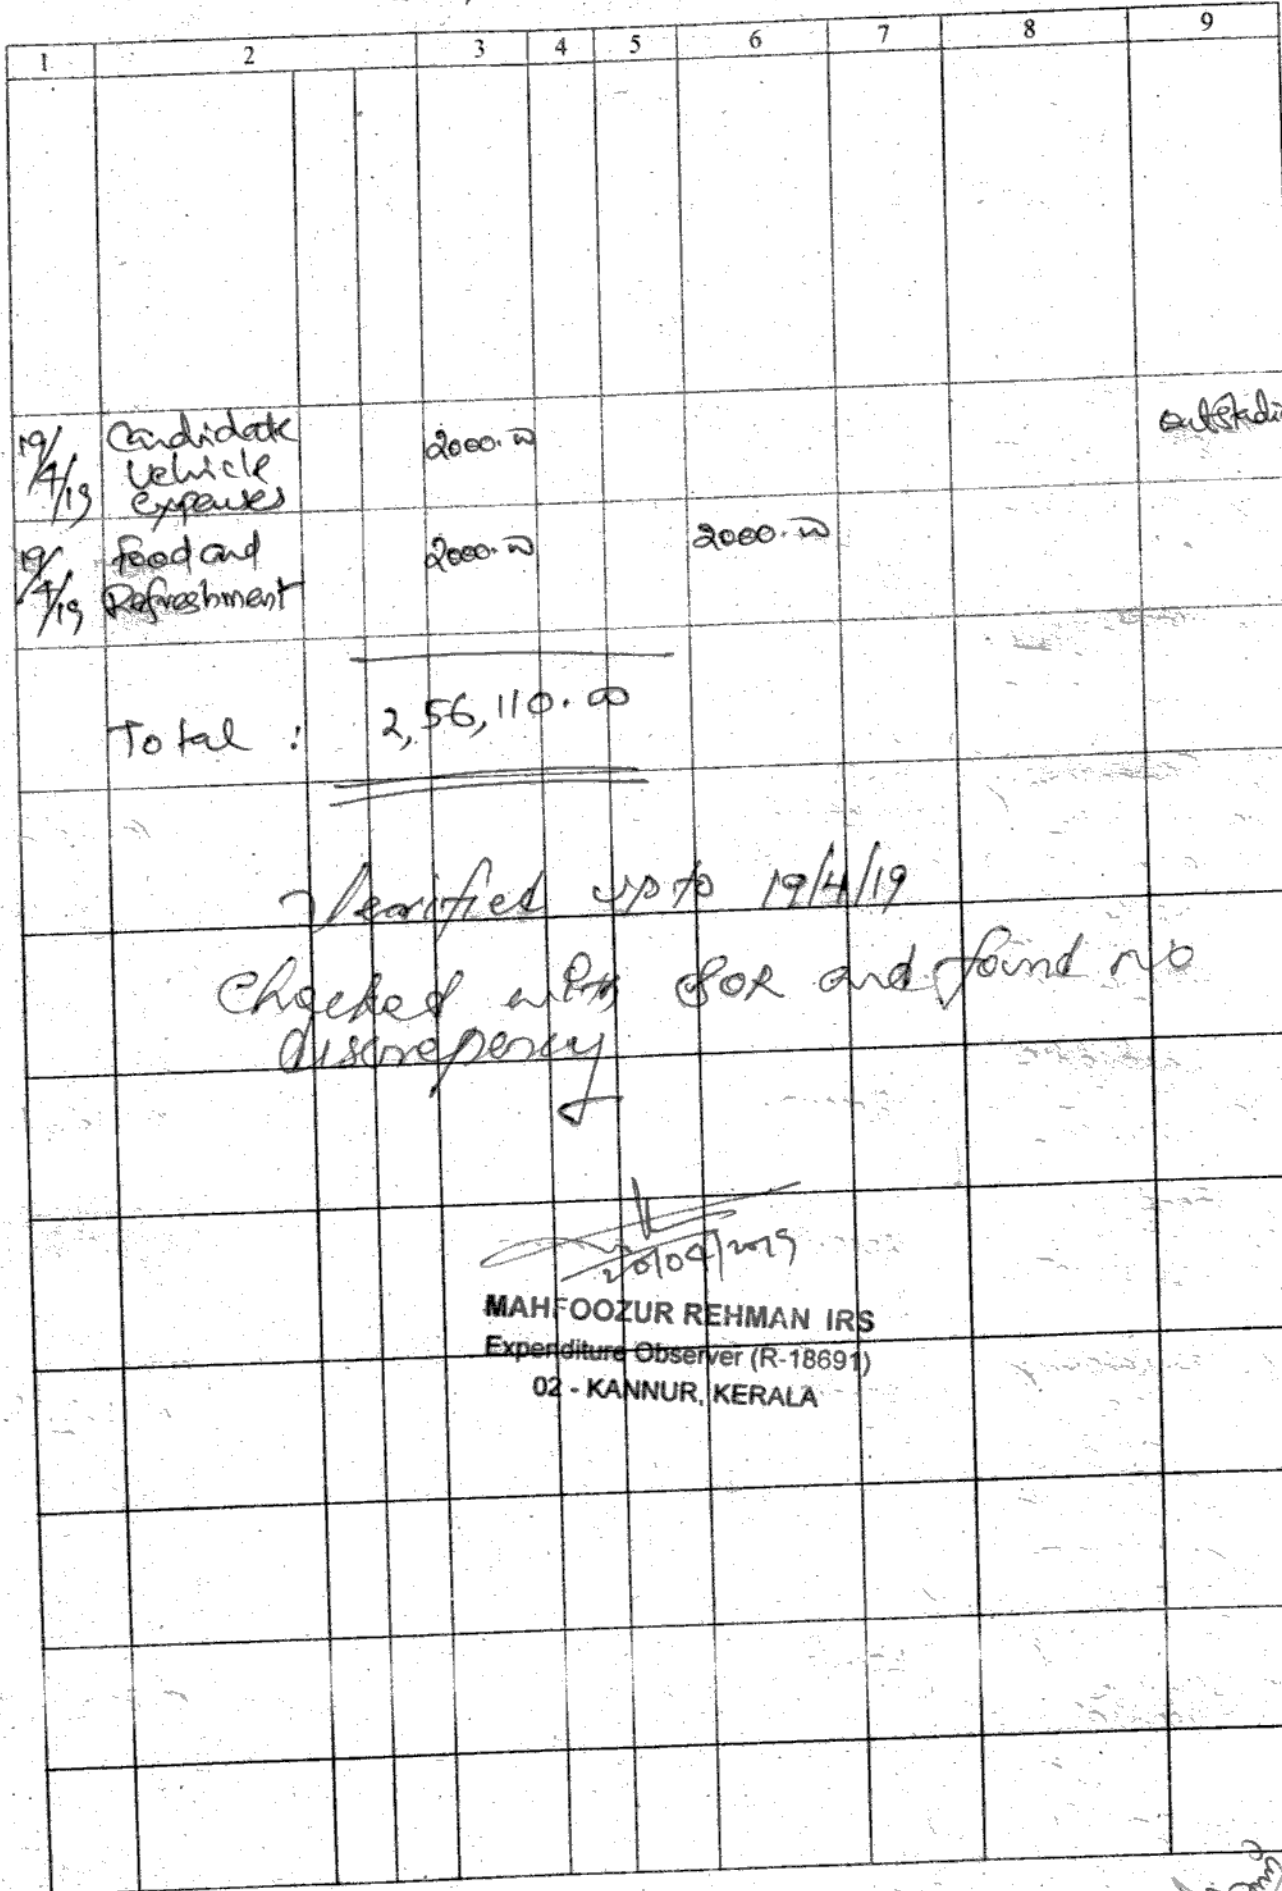 1 2 3 4 5 6 7 8 9
19/4/19 Candidate 2000.00
Vehicle
expenses
19/4/19 Food and 2000.00 2000.00
Refreshment
Total : 2,56,110.00
Verified upto 19/4/19
Checked with SOR and found no
discrepency
20/04/2019
MAHFOOZUR REHMAN IRS
Expenditure Observer (R-18691)
02 - KANNUR, KERALA